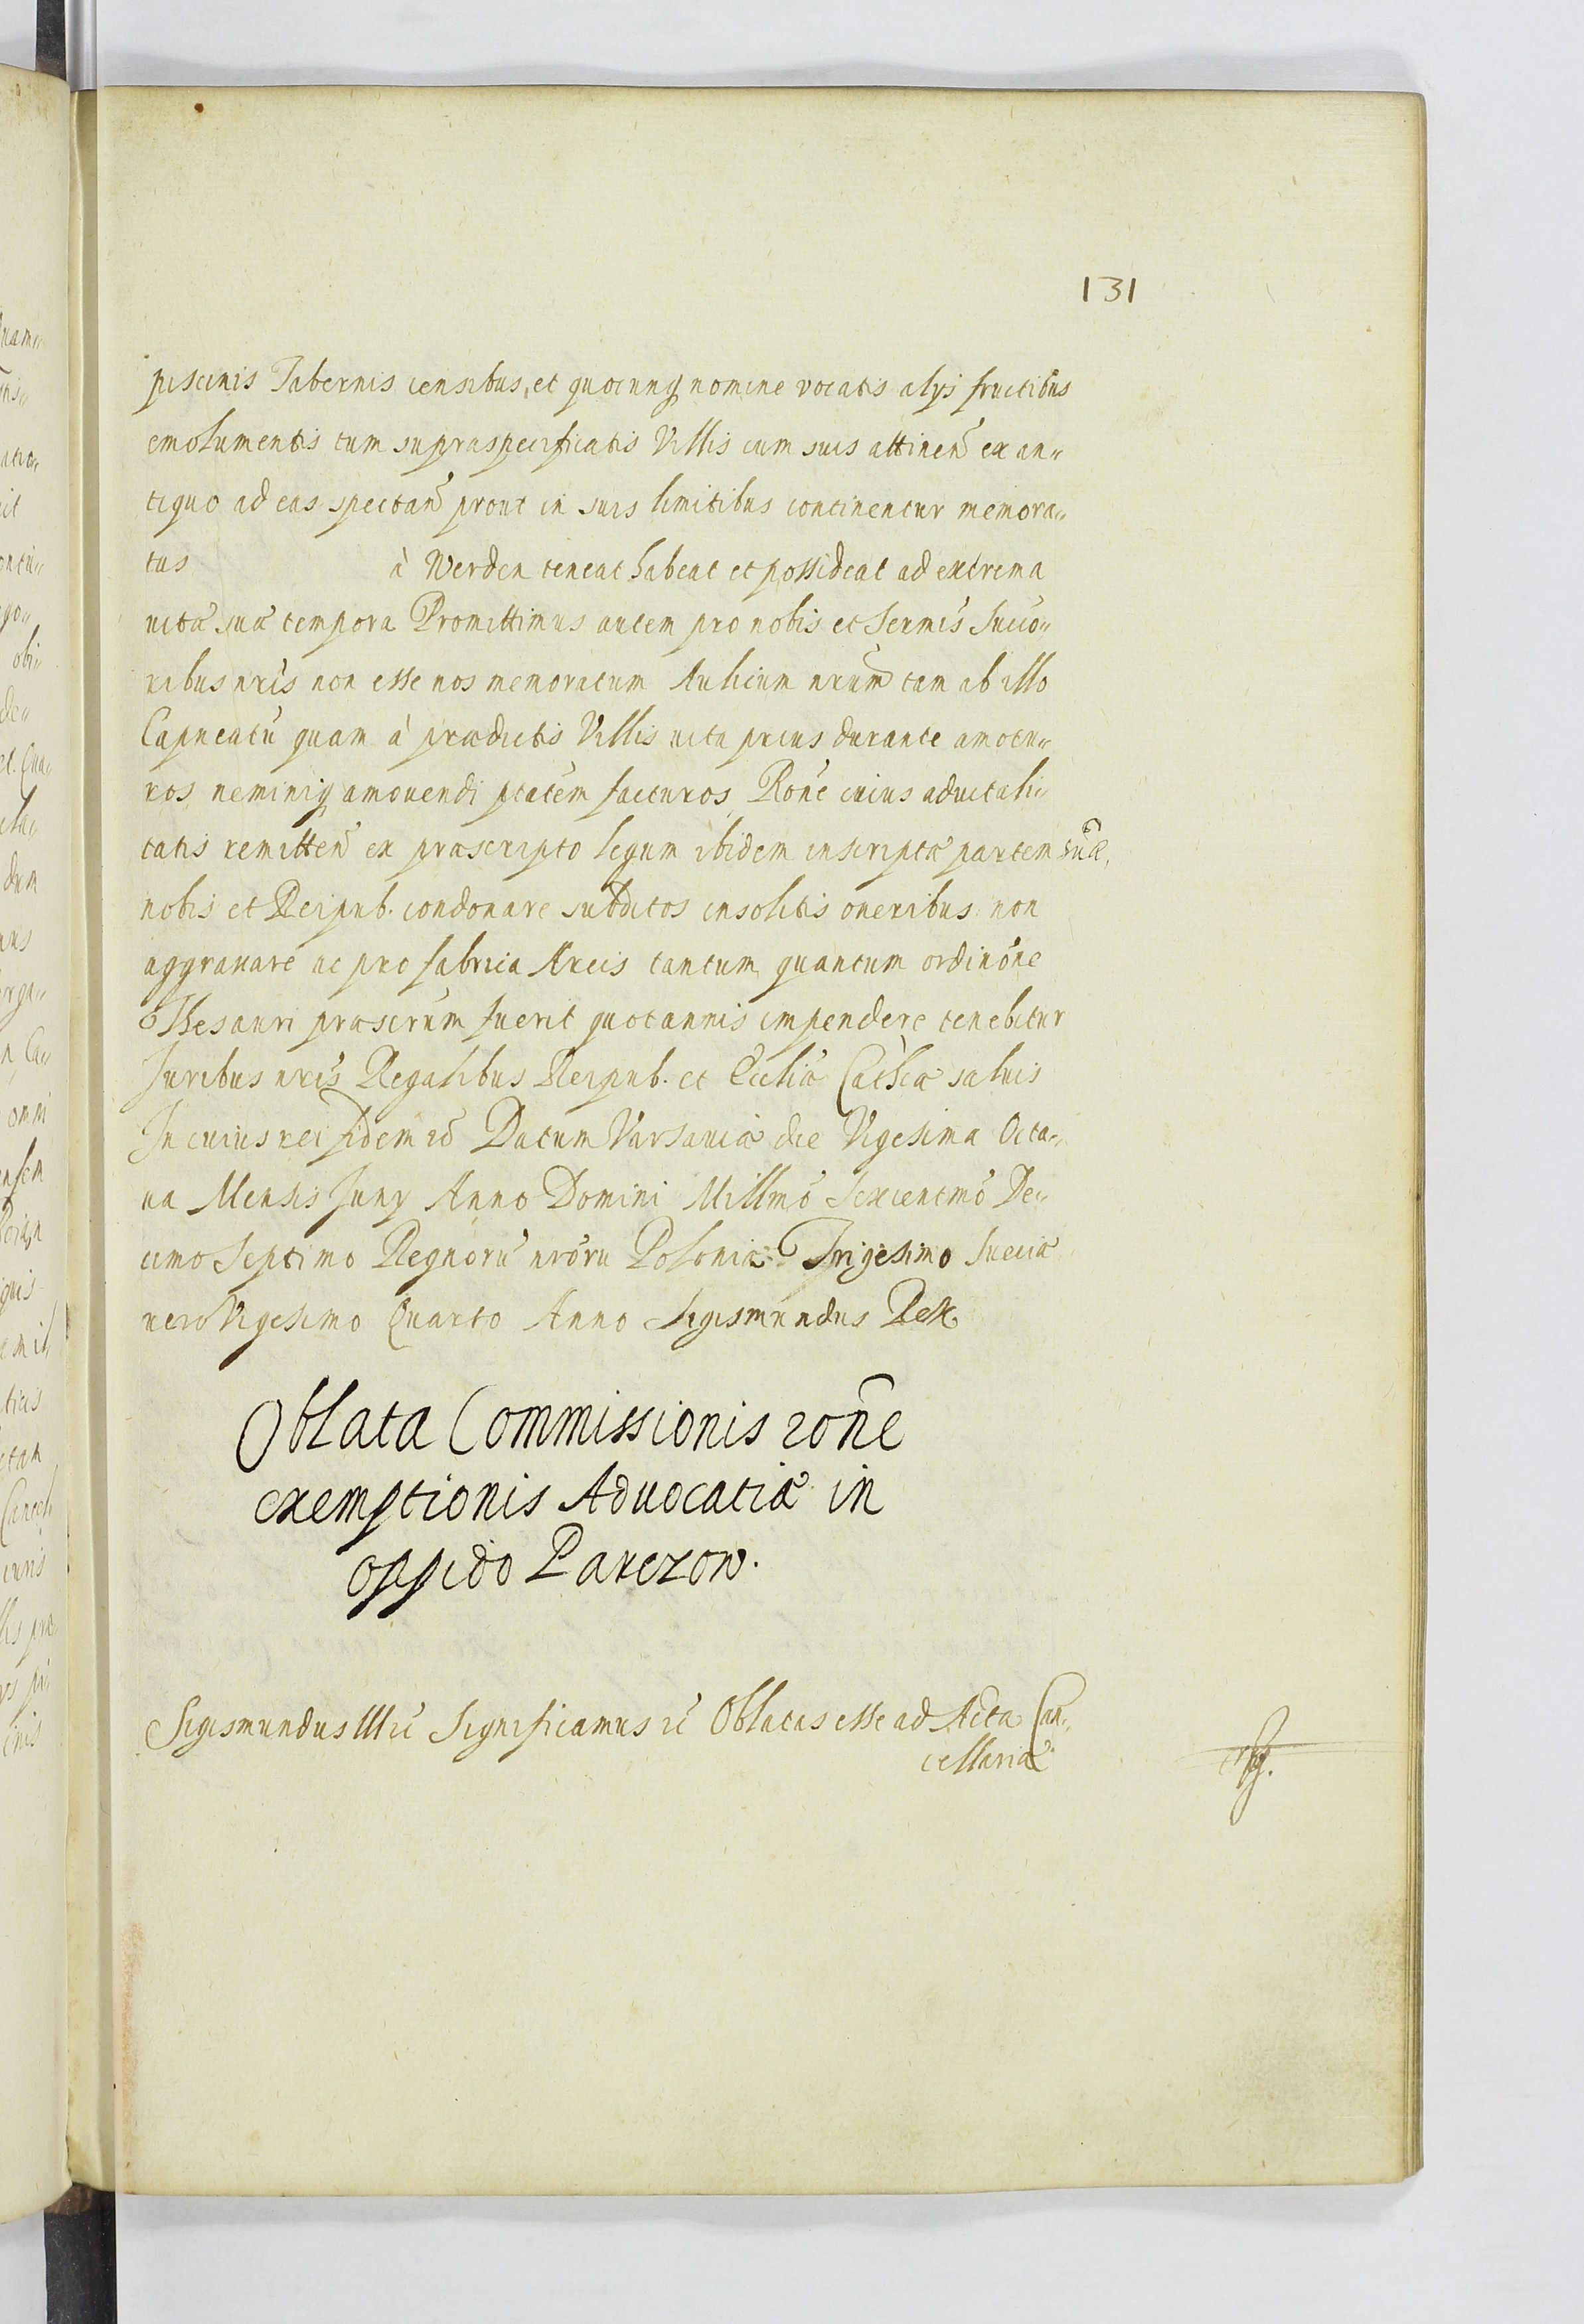 131
piscinis Tabernis censibus, et quocunq nomine vocatis alys fructibus
emolumentis tum supraspecificatis Villis cum suis attineñ ex an„
tiquo ad eas spectañ prout in suis limitibus continentur memora„
tus à Werden teneat habeat et possideat ad extrema
uitæ suæ tempora Promittimus autem pro nobis et Sermis Succo„
ribus nris non esse nos memoratum Aulicum nrum tam ab illo
Capneatu quam à prædictis Villis uita prius durante amotu„
ros neminiq amouendi ptatem facturos Rone cuius aduitali„
tatis remitteñ ex præscripto legum ibidem inscriptæ partem suæ,
nobis et Reipub. condonare subditos insolitis oneribus non
aggrauare ac pro fabrica Arcis tantum quantum ordinone
Thesauri præscrum fuerit quotannis impendere tenebitur
Juribus nris Regalibus Reipub. et Eccliæ Cathcæ saluis
In cuius rei fidem Datum Varsauiæ die Vigesima Octa„
ua Mensis Juny Anno Domini Millmo Sexcentmo De„
cimo Septimo Regnoru nroru Poloniæ Trigesimo Sueciæ
uero Vigesimo Quarto Anno Sigismundus Rex
Oblata Commissionis rone
exemptionis Aduocatiæ in
oppido Parczow.
Sigismundus IIItí Significamus Oblatas esse ad Acta Can„
cellariæ